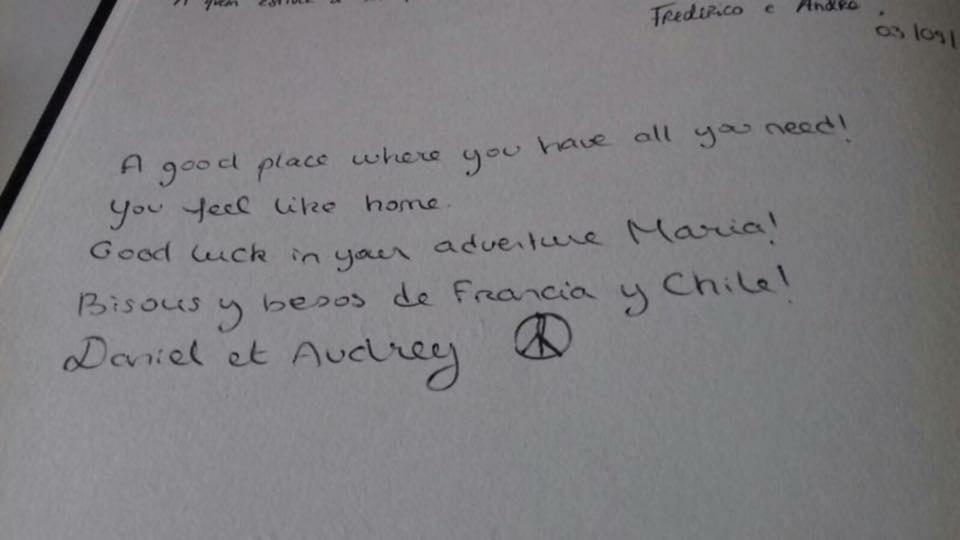 A quem
Frederico e André.
03/09/
A good place where you have all you need!
you feel like home.
Good luck in your adventure Maria!
Bisous y besos de Francia y Chile!
Daniel et Audrey